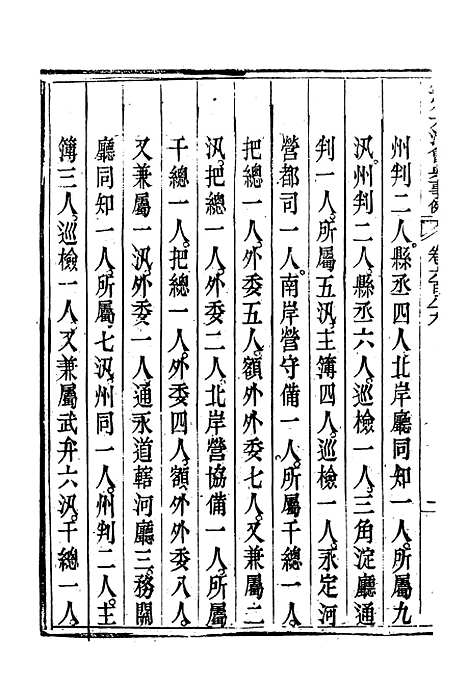 州判二人。縣丞四人北岸廳同知一人。所屬九
汛。州判二人。縣丞六人。巡檢一人。三角淀廳通
判一人。所屬五汛。主簿四人。巡檢一人。永定河
營都司一人。南岸營守備一人。所屬千總一人。
把總一人。外委五人。額外外委七人。又兼屬二
汛。把總一人。外委二人。北岸營協備一人。所屬
千總一人。把總一人。外委四人。額外外委八人。
又兼屬一汛。外委一人。通永道轄河廳三。務關
廳同知一人。所屬七汛。州同一人。州判二人。主
簿三人。巡檢一人。又兼屬武弁六汛。千總一人。